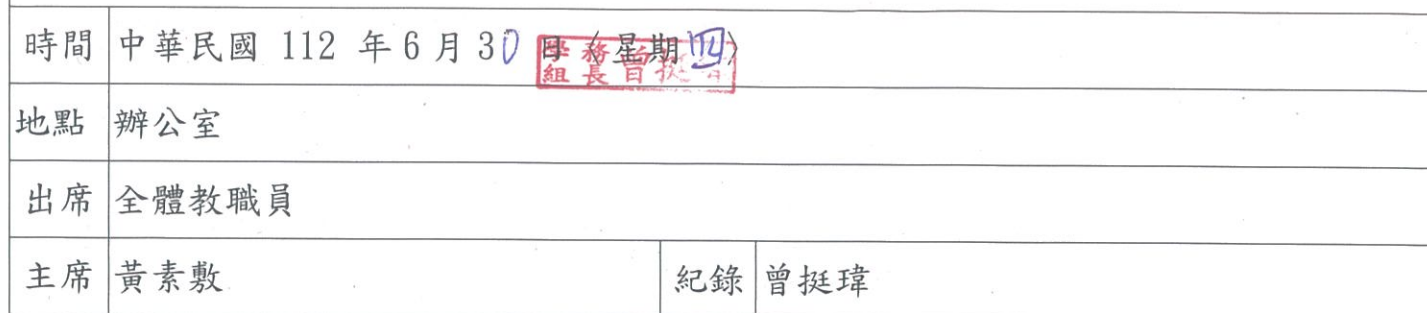 時間 中華民國 112 年 6 月 30 日（星期四）
學務 曾挺
組長
地點 辦公室
出席 全體教職員
主席 黃素敷 紀錄 曾挺瑋